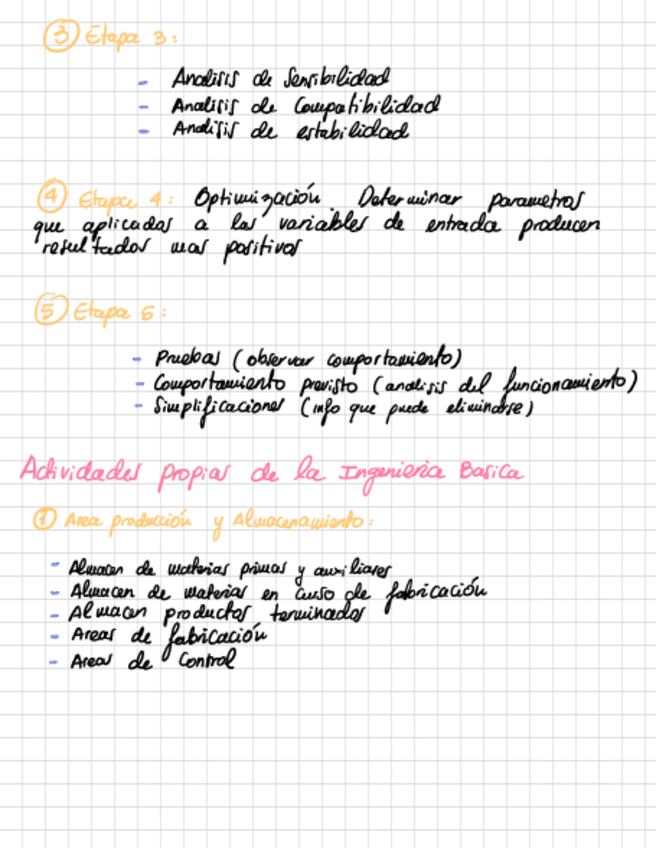 ③ Etapa 3:
- Analisis de Sensibilidad
- Analisis de Compatibilidad
- Analisis de estabilidad
④ Etapa 4: Optimización. Determinar parametros
que aplicados a las variables de entrada producen
resultados mas positivos
⑤ Etapa 5:
- Pruebas (observar comportamiento)
- Comportamiento previsto (analisis del funcionamiento)
- Simplificaciones (info que puede eliminarse)
Actividades propias de la Ingenieria Basica
① Area producción y Almacenamiento:
- Almacen de materias primas y auxiliares
- Almacen de materias en curso de fabricación
- Almacen productos terminados
- Areas de fabricación
- Areas de Control